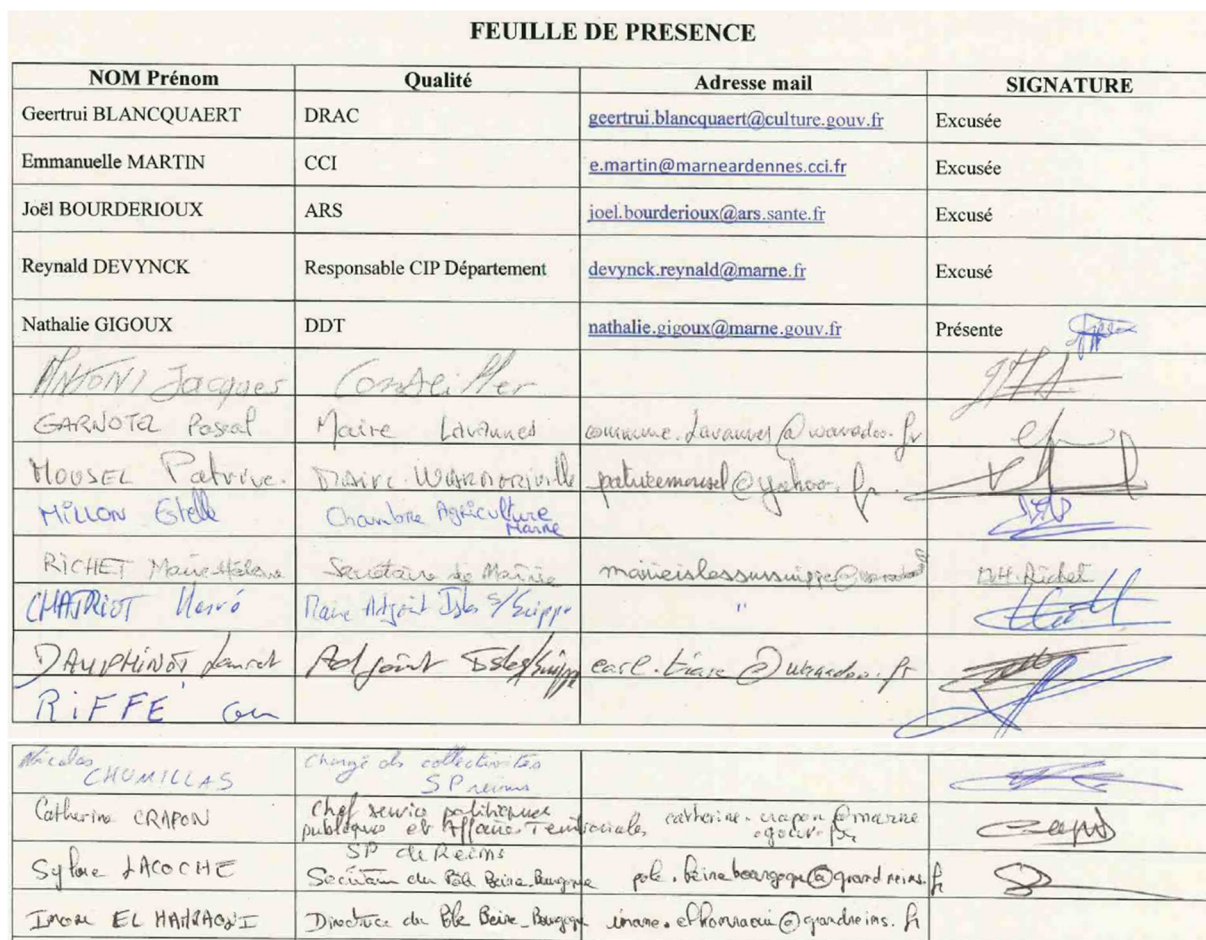 FEUILLE DE PRESENCE
NOM Prénom Qualité Adresse mail SIGNATURE
Geertrui BLANCQUAERT DRAC geertrui.blancquaert@culture.gouv.fr Excusée
Emmanuelle MARTIN CCI e.martin@marneardennes.cci.fr Excusée
Joël BOURDERIOUX ARS joel.bourderioux@ars.sante.fr Excusé
Reynald DEVYNCK Responsable CIP Département devynck.reynald@marne.fr Excusé
Nathalie GIGOUX DDT nathalie.gigoux@marne.gouv.fr Présente
ANTONI Jacques Conseiller
GARNOTEL Pascal Maire Lavannes commune.lavannes@wanadoo.fr
MOUSEL Patrice Maire WARMORIVILLE patricemousel@yahoo.fr
MILLON Estelle Chambre Agriculture
Marne
RICHET Marie-Hélène Secrétaire de Mairie mairieislessursuippe@ M.H. Richet
CHATRIOT Hervé Maire Adjoint Isles S/Suippe "
DAUPHINOT Laurent Adjoint Isles/Suippe @wanadoo.fr
RIFFÉ
Nicolas
CHUMILLAS
Chargé des collectivités
SP reims
Catherine CRAPON Chef service politiques
publiques et Affaires Territoriales
SP de Reims
catherine.crapon@marne
.gouv.fr
Sylvie LACOCHE Secrétaire du Pôle Beine-Bourgogne pole.beinebourgogne@grandreims.fr
EL HAMRAOUI Directrice du Pôle Beine-Bourgogne imane.elhamraoui@grandreims.fr